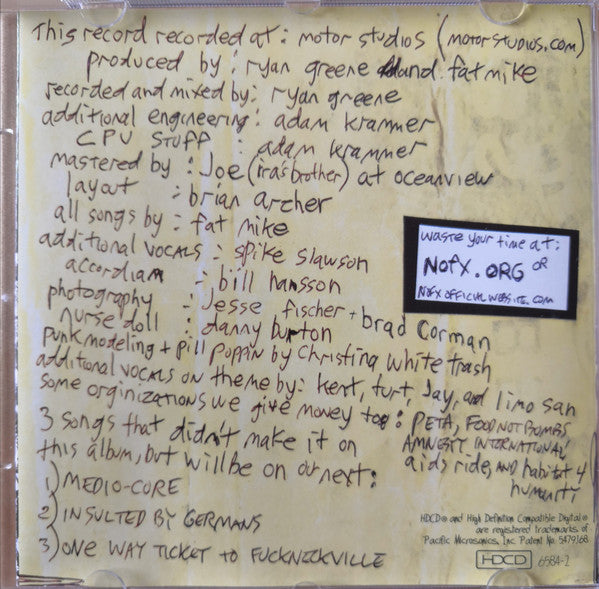 This record recorded at: motor studios (motorstudios.com)
produced by: ryan greene and fat mike
recorded and mixed by: ryan greene
additional engineering: adam krammer
CPU STUFF : adam krammer
mastered by: Joe (ira's brother) at oceanview
layout : brian archer
all songs by: fat mike
additional vocals: spike slawson
accordian : bill hansson
photography : Jesse fischer + brad corman
nurse doll : danny burton
punk modeling + pill poppin by Christina white trash
additional vocals on theme by: kent, turt, Jay, and limo san
some orginizations we give money too: PETA, FOOD NOT BOMBS
AMNESTY INTERNATIONAL,
aids ride, AND habitat 4
humanity
3 songs that didn't make it on
this album, but will be on our next:
1) MEDIO-CORE
2) INSULTED BY GERMANS
3) ONE WAY TICKET TO FUCKNECKVILLE
waste your time at:
NOFX.ORG OR
NOFXOFFICIALWEBSITE.COM
HDCD® and High Definition Compatible Digital®
are registered trademarks of
Pacific Microsonics, Inc. Patent No. 5479168
HDCD 6584-2